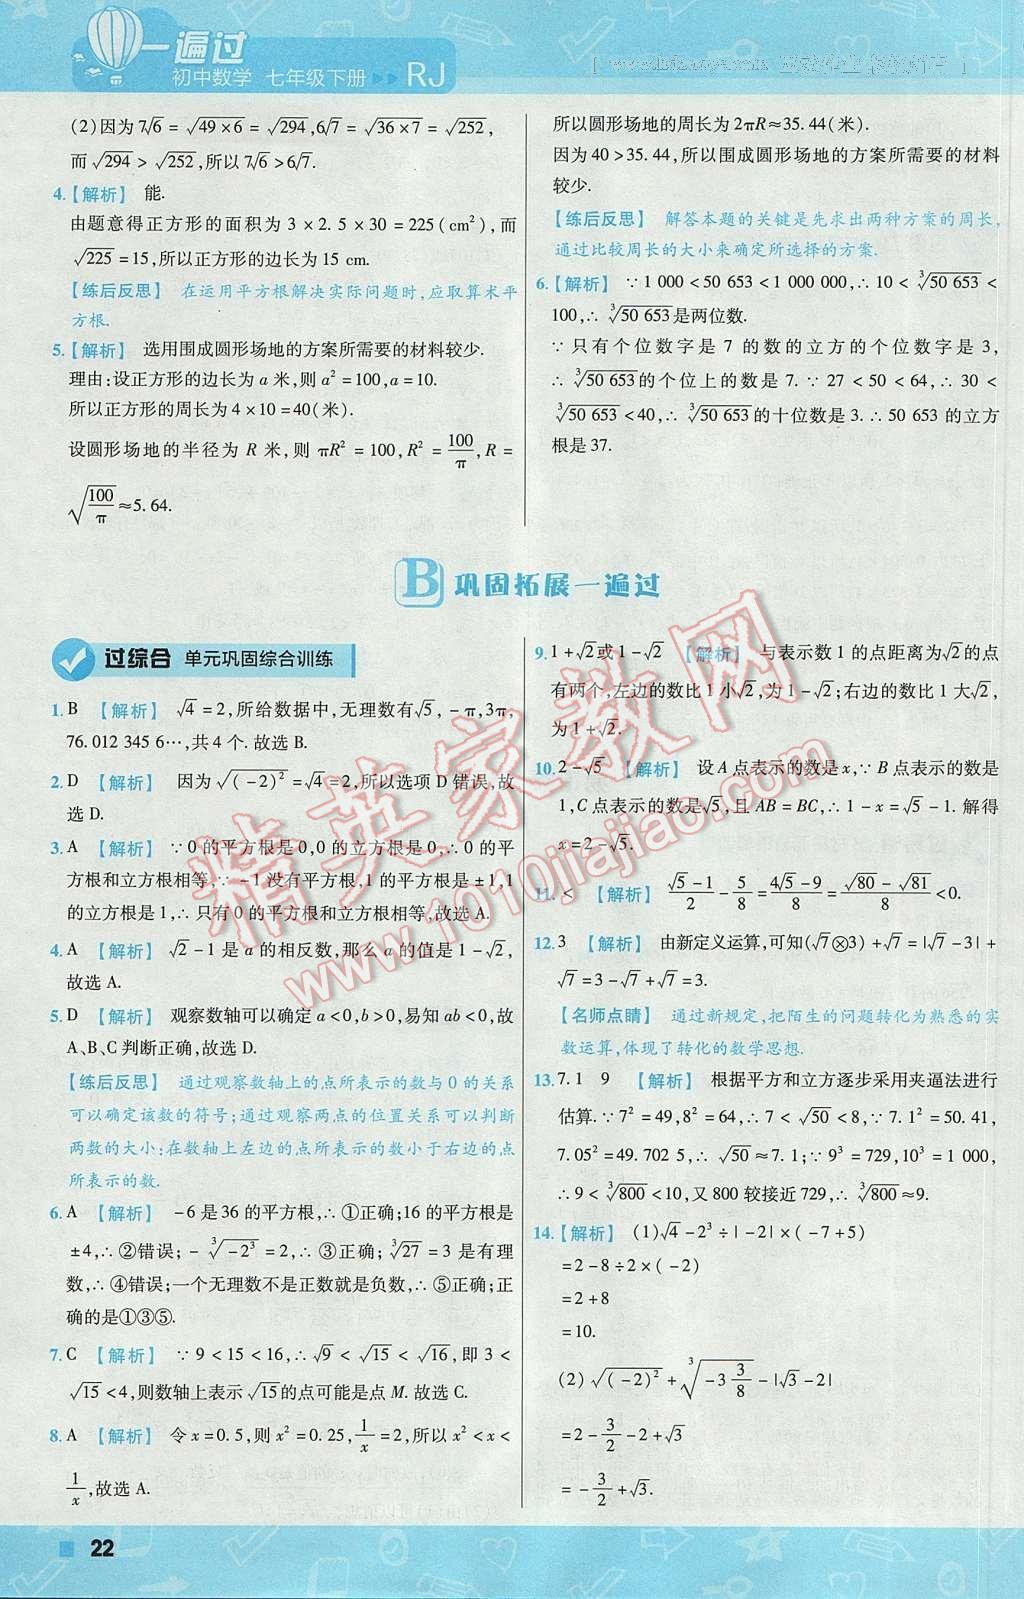 一遍过
初中数学 七年级下册 RJ
(2)因为7√6 = √(49×6) = √294,6√7 = √(36×7) = √252,
而√294 > √252,所以7√6>6√7.
4.【解析】 能.
由题意得正方形的面积为 3×2.5×30=225(cm²),而
√225=15,所以正方形的边长为15 cm.
【练后反思】 在运用平方根解决实际问题时,应取算术平
方根.
5.【解析】 选用围成圆形场地的方案所需要的材料较少.
理由:设正方形的边长为a米,则a²=100,a=10.
所以正方形的周长为4×10=40(米).
设圆形场地的半径为R米,则πR²=100,R²=100/π,R=
√(100/π)≈5.64.
所以圆形场地的周长为2πR≈35.44(米).
因为40>35.44,所以围成圆形场地的方案所需要的材料
较少.
【练后反思】 解答本题的关键是先求出两种方案的周长,
通过比较周长的大小来确定所选择的方案.
6.【解析】 ∵1 000<50 653<1 000 000,∴10<∛50 653<
100,∴∛50 653是两位数.
∵只有个位数字是7的数的立方的个位数字是3,
∴∛50 653的个位上的数是7.∵27<50<64,∴30<
∛50 653<40,∴∛50 653的十位数是3.∴50 653的立方
根是37.
B 巩固拓展一遍过
过综合 单元巩固综合训练
1.B 【解析】 √4=2,所给数据中,无理数有√5,-π,3π,
76.012 345 6…,共4个.故选B.
2.D 【解析】 因为√(-2)²=√4=2,所以选项D错误,故
选D.
3.A 【解析】 ∵0的平方根是0,0的立方根是0,∴0的平
方根和立方根相等,∵-1没有平方根,1的平方根是±1,1
的立方根是1,∴只有0的平方根和立方根相等.故选A.
4.A 【解析】 √2-1是a的相反数,那么a的值是1-√2,
故选A.
5.D 【解析】 观察数轴可以确定a<0,b>0,易知ab<0,故
A、B、C判断正确,故选D.
【练后反思】 通过观察数轴上的点所表示的数与0的关系
可以确定该数的符号;通过观察两点的位置关系可以判断
两数的大小:在数轴上左边的点所表示的数小于右边的点
所表示的数.
6.A 【解析】 -6是36的平方根,∴①正确;16的平方根是
±4,∴②错误;-∛-2³=2,∴③正确;∛27=3=3,∴④错误;一个无理数不是正数就是负数,∴⑤正确;正
确的是①③⑤.
7.C 【解析】 ∵9<15<16,∴√9<√15<√16,即3<
√15<4,则数轴上表示√15的点可能是点M.故选C.
8.A 【解析】 令x=0.5,则x²=0.25,1/x=2,所以x²<x<
1/x,故选A.
9.1+√2或1-√2 【解析】 与表示数1的点距离为√2的点
有两个,左边的数比1小√2,为1-√2;右边的数比1大√2,
为1+√2.
10.2-√5 【解析】 设A点表示的数是x,∵B点表示的数是
1,C点表示的数是√5,且AB=BC,∴1-x=√5-1.解得
x=2-√5.
11.< 【解析】 (√5-1)/2-5/8=(4√5-9)/8=(√80-√81)/8<0.
12.3 【解析】 由新定义运算,可知(√7⊗3)+√7=|√7-3|+
√7=3-√7+√7=3.
【名师点睛】 通过新规定,把陌生的问题转化为熟悉的实
数运算,体现了转化的数学思想.
13.7.1 9 【解析】 根据平方和立方逐步采用夹逼法进行
估算.∵7²=49,8²=64,∴7<√50<8,∵7.1²=50.41,
7.05²=49.702 5,∴√50≈7.1;∵9³=729,10³=1 000,
∴9<∛800<10,又800较接近729,∴∛800≈9.
14.【解析】 (1)√4-2³÷|-2|×(-7+5)
=2-8÷2×(-2)
=2+8
=10.
(2)√(-2)²+∛(-3 3/8)-|√3-2|
=2-3/2-2+√3
=-3/2+√3.
22
精英家教网
www.1010jiajiao.com